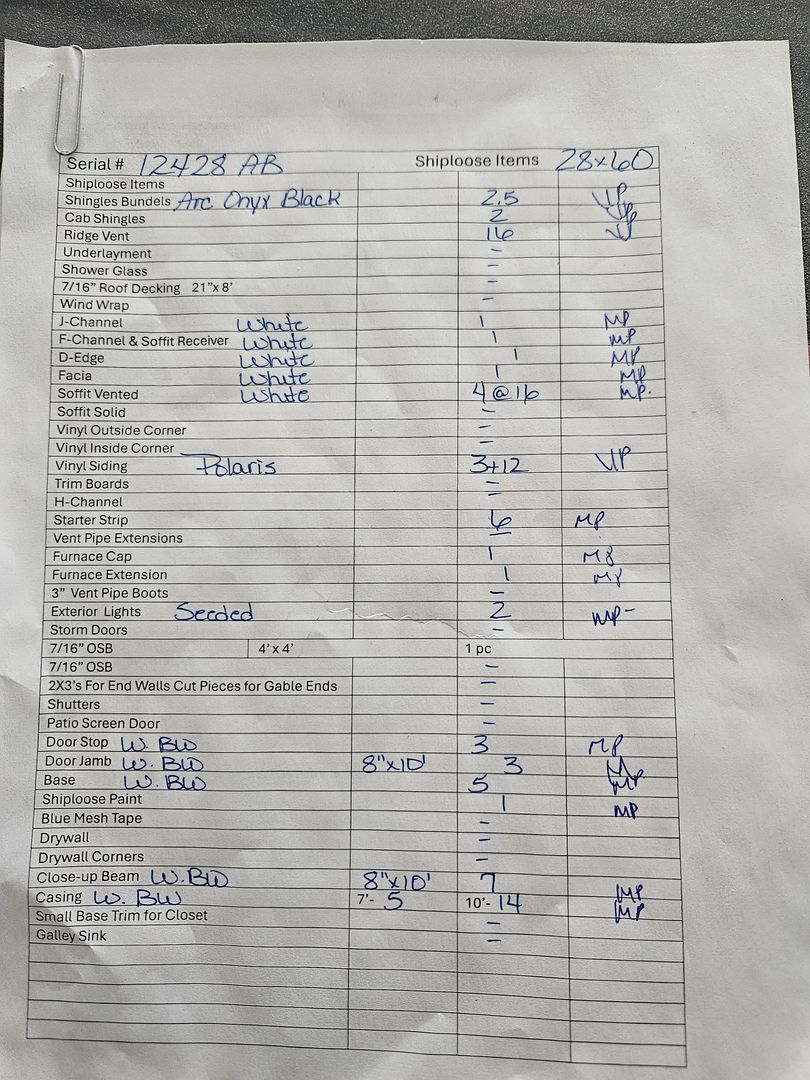 Serial # 12428 AB Shiploose Items 28x60
Shiploose Items
Shingles Bundels Arc Onyx Black 2.5 VP
Cab Shingles 2 VP
Ridge Vent 16
Underlayment -
Shower Glass -
7/16" Roof Decking 21"x 8' -
Wind Wrap -
J-Channel White 1 MP
F-Channel & Soffit Receiver White 1 MP
D-Edge White 1 MP
Facia White 1 MP
Soffit Vented White 4@16 MP.
Soffit Solid -
Vinyl Outside Corner -
Vinyl Inside Corner -
Vinyl Siding Polaris 3+12 VP
Trim Boards -
H-Channel -
Starter Strip 6 MP
Vent Pipe Extensions -
Furnace Cap 1 MP
Furnace Extension 1 MP
3" Vent Pipe Boots -
Exterior Lights Seeded 2 MP-
Storm Doors -
7/16" OSB 4' x 4' 1 pc
7/16" OSB -
2X3's For End Walls Cut Pieces for Gable Ends -
Shutters -
Patio Screen Door -
Door Stop W. BW 3 MP
Door Jamb W. BW 8"x10' 3
Base W. BW 5 MP
Shiploose Paint 1 MP
Blue Mesh Tape -
Drywall -
Drywall Corners -
Close-up Beam W.BW 8"x10' 7 MP
Casing W. BW 7'- 5 10'- 14 MP
Small Base Trim for Closet -
Galley Sink -